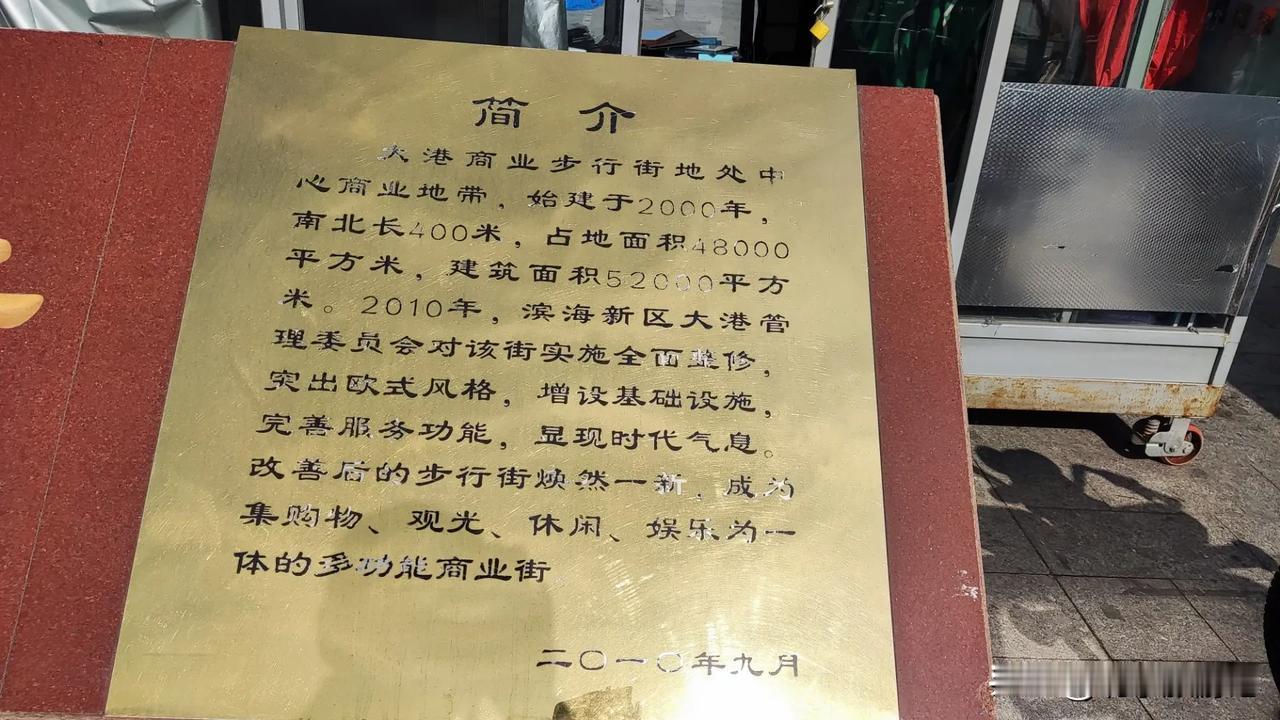 简介
大港商业步行街地处中
心商业地带，始建于2000年，
南北长400米，占地面积48000
平方米，建筑面积52000平方
米。2010年，滨海新区大港管
理委员会对该街实施全面整修，
突出欧式风格，增设基础设施，
完善服务功能，显现时代气息。
改善后的步行街焕然一新，成为
集购物、观光、休闲、娱乐为一
体的多功能商业街
二〇一〇年九月